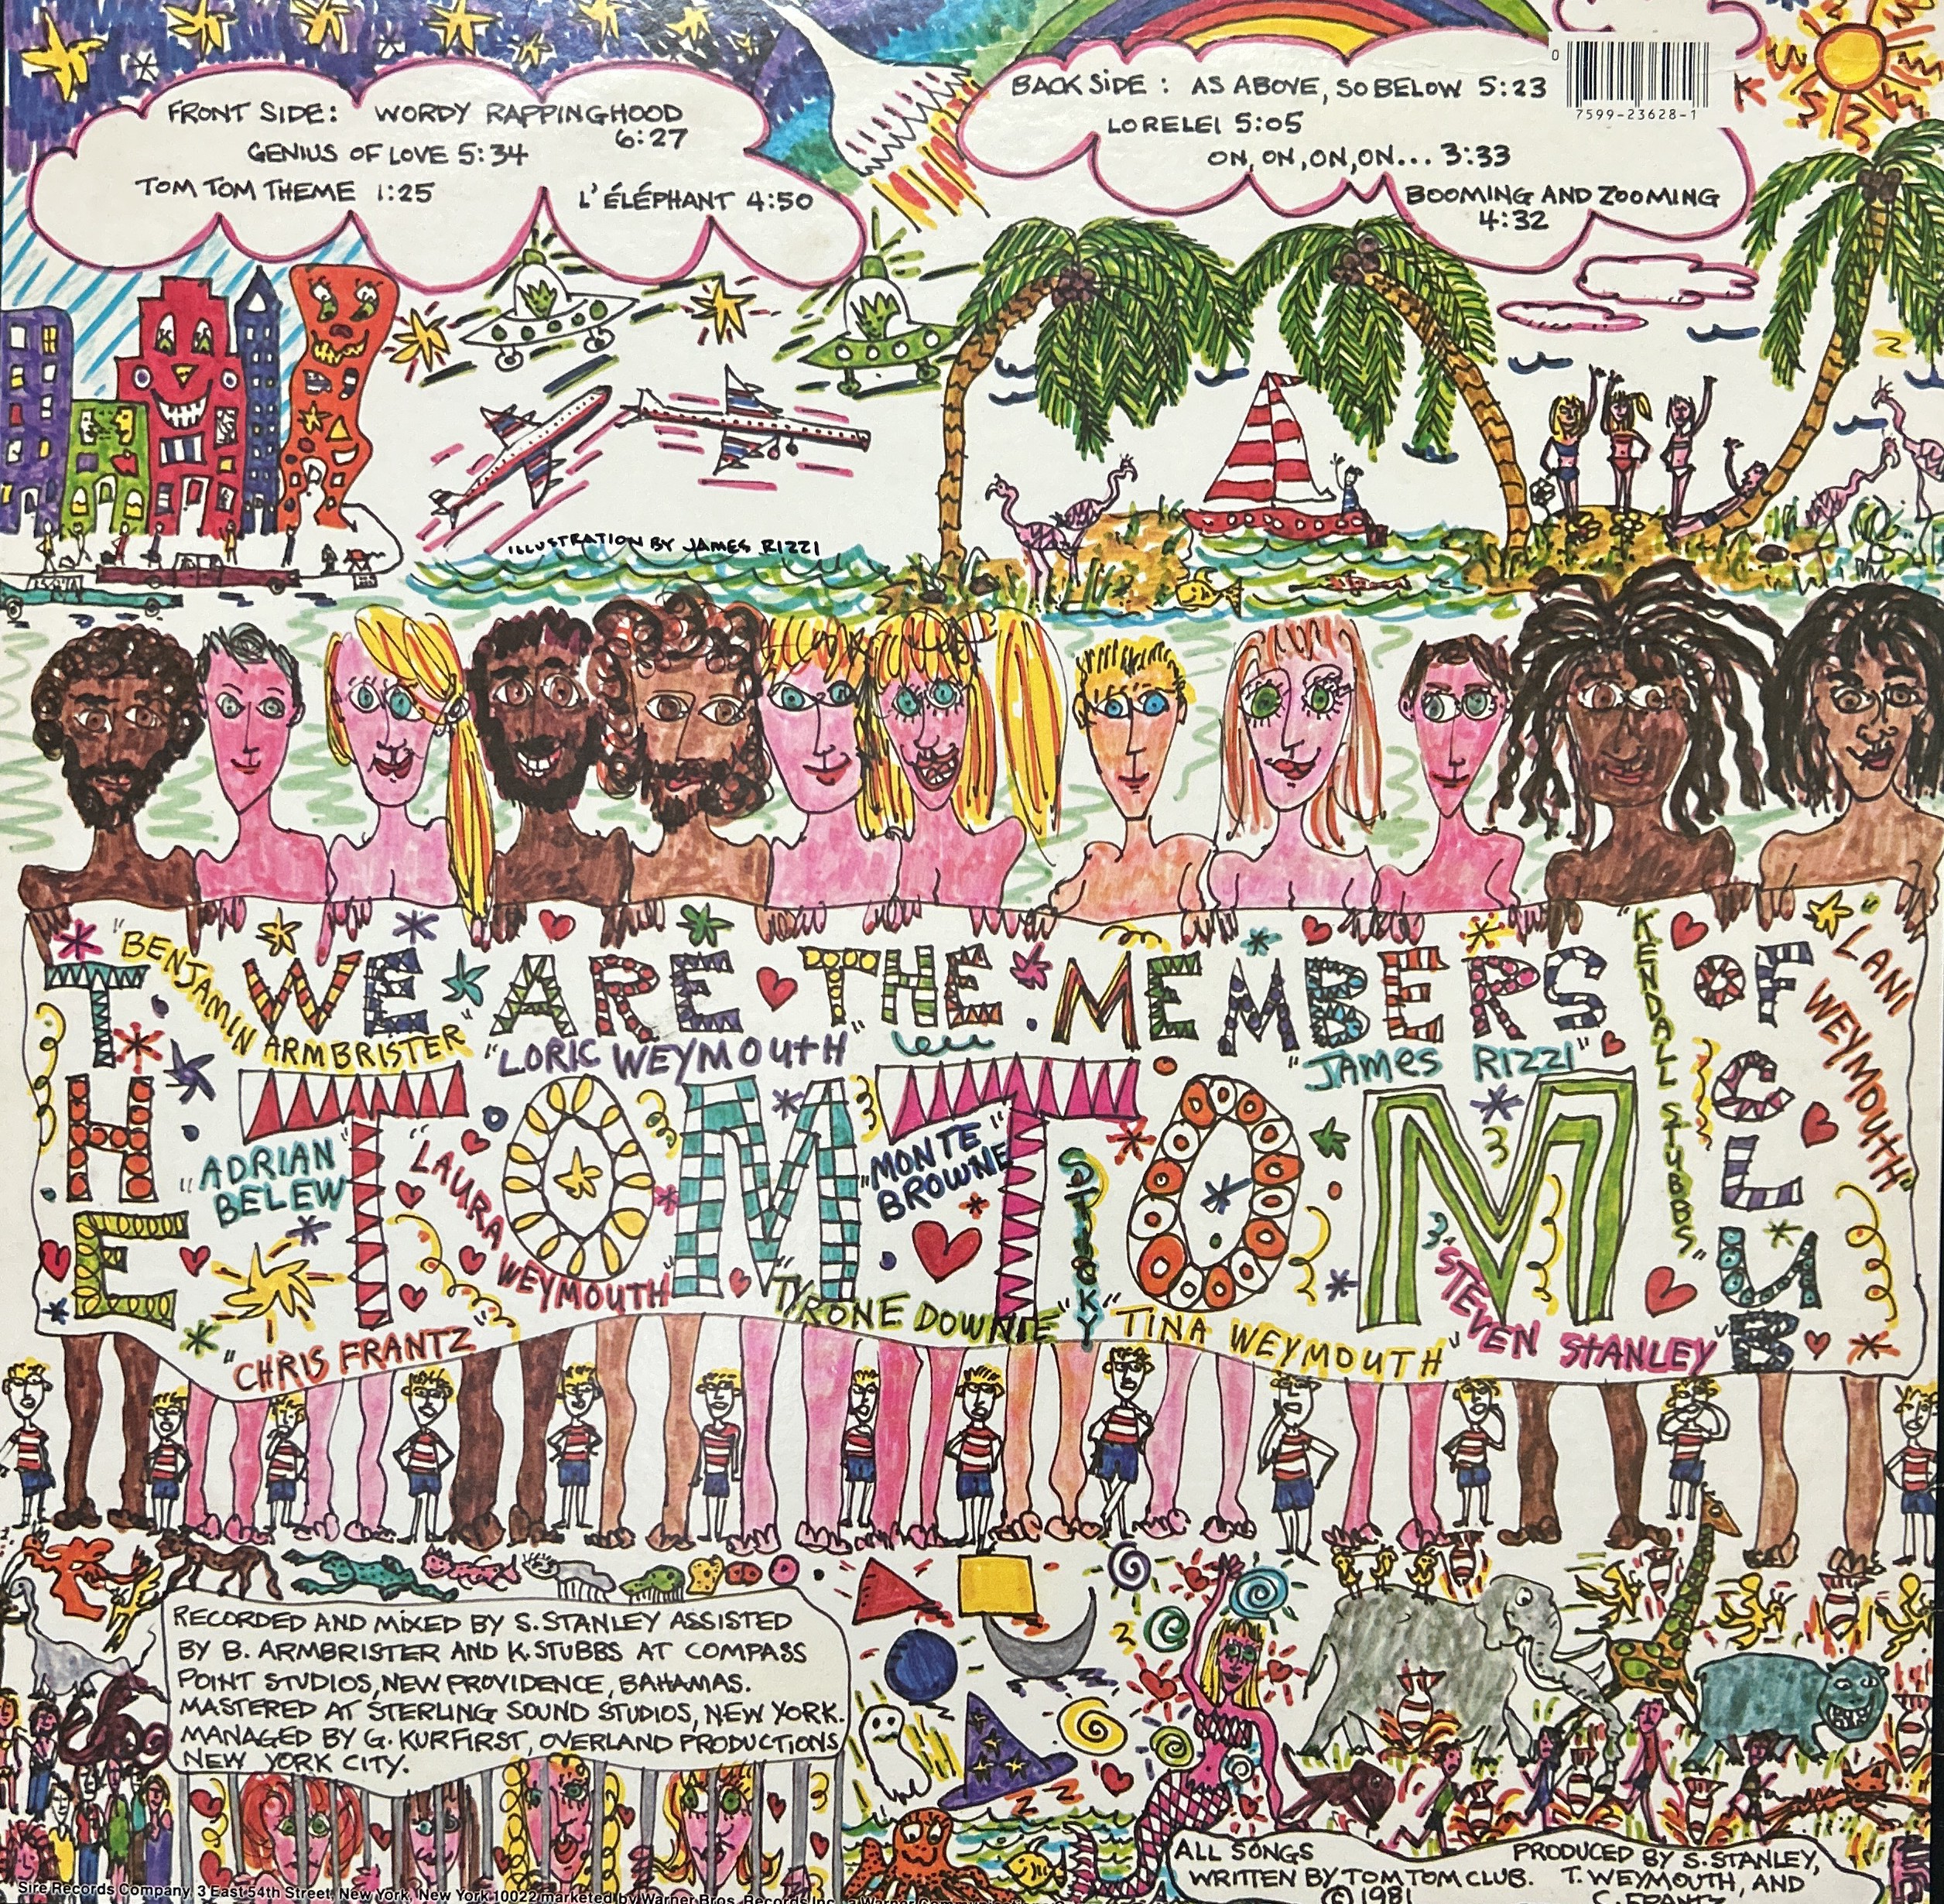 FRONT SIDE: WORDY RAPPINGHOOD
6:27
GENIUS OF LOVE 5:34
TOM TOM THEME 1:25
L'ÉLÉPHANT 4:50
BACK SIDE: AS ABOVE, SO BELOW 5:23
LORELEI 5:05
ON, ON, ON, ON... 3:33
BOOMING AND ZOOMING
4:32
0
7599-23628-1
ILLUSTRATION BY JAMES RIZZI
WE ARE THE MEMBERS OF
THE TOM TOM CLUB
"BENJAMIN ARMBRISTER"
"LORIC WEYMOUTH"
"JAMES RIZZI"
"KENDAL STUBBS"
"LANI WEYMOUTH"
"ADRIAN
BELEW"
"LAURA WEYMOUTH"
"MONTE
BROWNE"
"TYRONE DOWNIE"
"STICKY"
"TINA WEYMOUTH"
"STEVEN STANLEY"
"CHRIS FRANTZ"
RECORDED AND MIXED BY S. STANLEY ASSISTED
BY B. ARMBRISTER AND K. STUBBS AT COMPASS
POINT STUDIOS, NEW PROVIDENCE, BAHAMAS.
MASTERED AT STERLING SOUND STUDIOS, NEW YORK.
MANAGED BY G. KURFIRST, OVERLAND PRODUCTIONS
NEW YORK CITY.
ALL SONGS
WRITTEN BY TOM TOM CLUB.
© 1981
PRODUCED BY S. STANLEY,
T. WEYMOUTH, AND
C. FRANTZ
Sire Records Company, 3 East 54th Street, New York, New York 10022 marketed by Warner Bros. Records Inc.